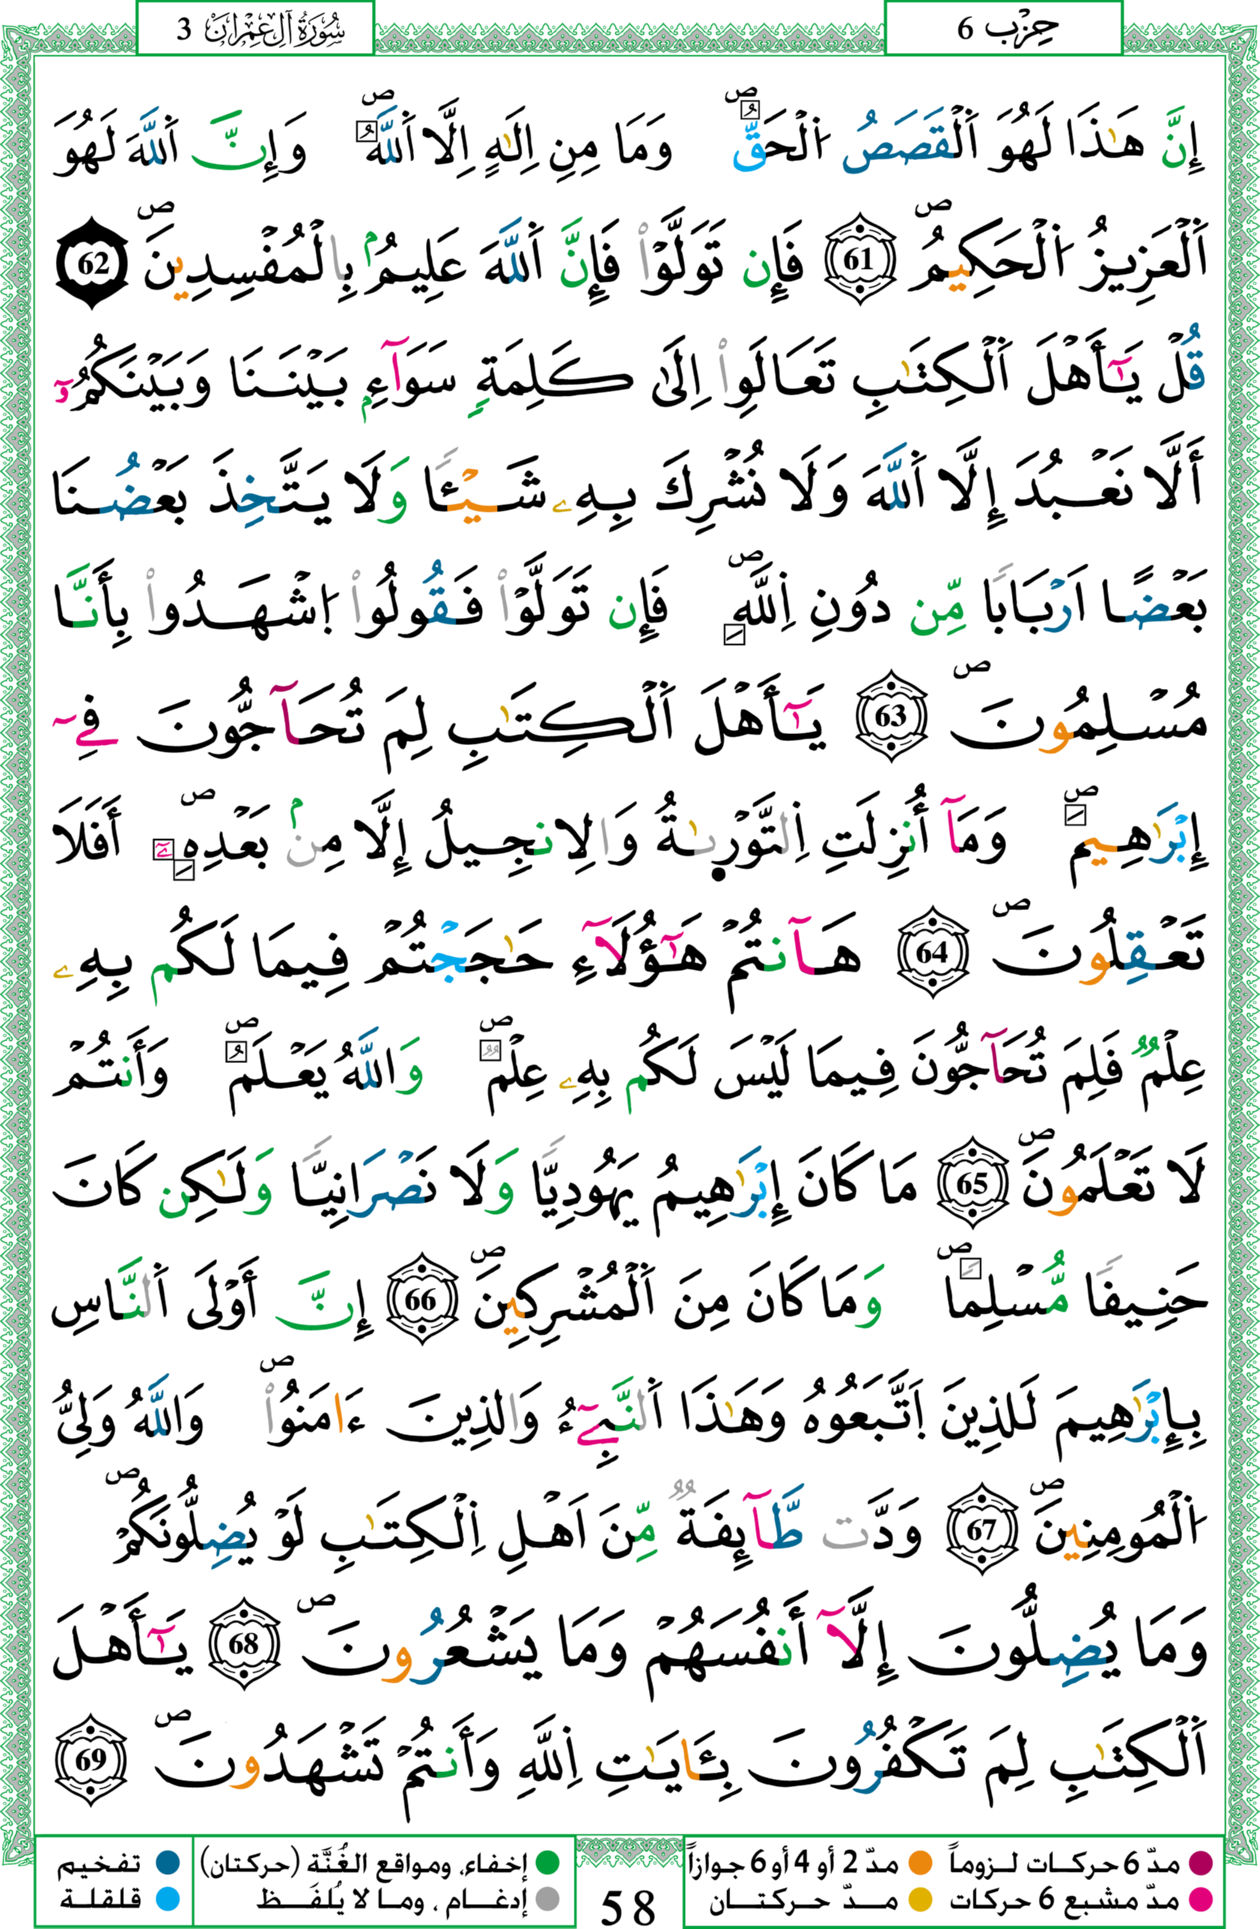 سُورَةُ آلِ عِمْرَان 3
حِزْب 6
إِنَّ هَٰذَا لَهُوَ اَ۬لْقَصَصُ اُ۬لْحَقُّۖ وَمَا مِنِ اِلَٰهٍ اِلَّا اَ۬للَّهُۖ وَإِنَّ اَ۬للَّهَ لَهُوَ
اَ۬لْعَزِيزُ اُ۬لْحَكِيمُۖ 61 فَإِن تَوَلَّوْاْ فَإِنَّ اَ۬للَّهَ عَلِيمُۢ بِالْمُفْسِدِينَۖ 62
قُلْ يَٰٓأَهْلَ اَ۬لْكِتَٰبِ تَعَالَوِاْ اِلَىٰ كَلِمَةٖ سَوَآءِۢ بَيْنَنَا وَبَيْنَكُمُۥٓ
أَلَّا نَعْبُدَ إِلَّا اَ۬للَّهَ وَلَا نُشْرِكَ بِهِۦ شَيْـٔاً وَلَا يَتَّخِذَ بَعْضُنَا
بَعْضًا اَرْبَاباً مِّن دُونِ اِ۬للَّهِۖ فَإِن تَوَلَّوْاْ فَقُولُواْ اُ۪شْهَدُواْ بِأَنَّا
مُسْلِمُونَۖ 63 يَٰٓأَهْلَ اَ۬لْكِتَٰبِ لِمَ تُحَآجُّونَ فِےٓ
إِبْرَٰهِيمَۖ وَمَآ أُنزِلَتِ اِ۬لتَّوْر۪ىٰةُ وَالِانجِيلُ إِلَّا مِنۢ بَعْدِهِۦٓۖ أَفَلَا
تَعْقِلُونَۖ 64 هَآنتُمْ هَٰٓؤُلَآءِ حَٰجَجْتُمْ فِيمَا لَكُم بِهِۦ
عِلْمٞ فَلِمَ تُحَآجُّونَ فِيمَا لَيْسَ لَكُم بِهِۦ عِلْمٞۖ وَاللَّهُ يَعْلَمُۖ وَأَنتُمْ
لَا تَعْلَمُونَۖ 65 مَا كَانَ إِبْرَٰهِيمُ يَهُودِيّاً وَلَا نَصْرَانِيّاً وَلَٰكِن كَانَ
حَنِيفاً مُّسْلِماًۖ وَمَا كَانَ مِنَ اَ۬لْمُشْرِكِينَۖ 66 إِنَّ أَوْلَى اَ۬لنَّاسِ
بِإِبْرَٰهِيمَ لَلذِينَ اَ۪تَّبَعُوهُ وَهَٰذَا اَ۬لنَّبِےٓءُ وَالذِينَ ءَامَنُواْۖ وَاللَّهُ وَلِيُّ
اُ۬لْمُومِنِينَۖ 67 وَدَّت طَّآئِفَةٞ مِّنَ اَهْلِ اِ۬لْكِتَٰبِ لَوْ يُضِلُّونَكُمْۖ
وَمَا يُضِلُّونَ إِلَّآ أَنفُسَهُمْ وَمَا يَشْعُرُونَۖ 68 يَٰٓأَهْلَ
اَ۬لْكِتَٰبِ لِمَ تَكْفُرُونَ بِـَٔايَٰتِ اِ۬للَّهِ وَأَنتُمْ تَشْهَدُونَۖ 69
مدّ 6 حركات لـزوماً مدّ 2 أو 4 أو 6 جوازاً
مدّ مشبع 6 حركات مـدّ حركتـان
58
إخفاء، ومواقع الغُنَّة (حركتان) تفخيم
إدغـام ، ومـا لا يُلفَـظ قلقلة